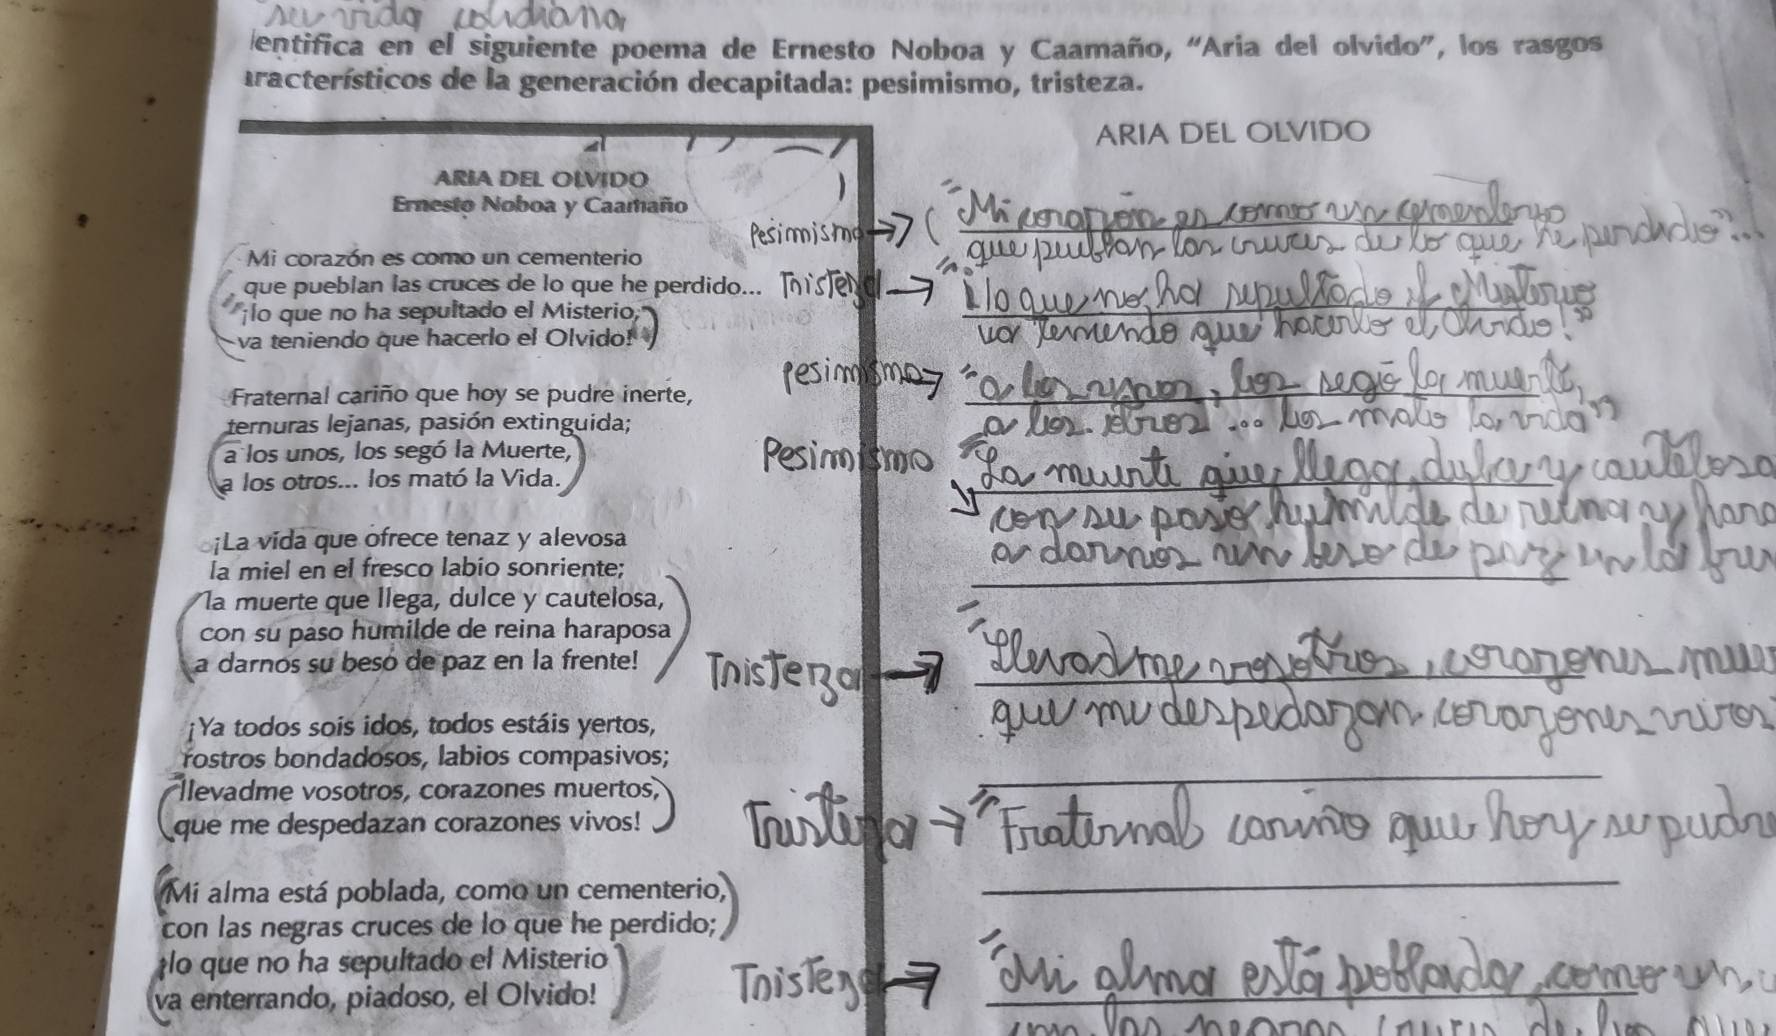 su vida cotidiana
entifica en el siguiente poema de Ernesto Noboa y Caamaño, “Aria del olvido”, los rasgos
aracterísticos de la generación decapitada: pesimismo, tristeza.
ARIA DEL OLVIDO
Ernesto Noboa y Caamaño
Mi corazón es como un cementerio
que pueblan las cruces de lo que he perdido...
¡lo que no ha sepultado el Misterio,
va teniendo que hacerlo el Olvido!
Fraternal cariño que hoy se pudre inerte,
ternuras lejanas, pasión extinguida;
a los unos, los segó la Muerte,
a los otros... los mató la Vida.
¡La vida que ofrece tenaz y alevosa
la miel en el fresco labio sonriente;
la muerte que llega, dulce y cautelosa,
con su paso humilde de reina haraposa
a darnos su beso de paz en la frente!
¡Ya todos sois idos, todos estáis yertos,
rostros bondadosos, labios compasivos;
llevadme vosotros, corazones muertos,
que me despedazan corazones vivos!
Mi alma está poblada, como un cementerio,
con las negras cruces de lo que he perdido;
¡lo que no ha sepultado el Misterio
va enterrando, piadoso, el Olvido!
ARIA DEL OLVIDO
Pesimismo → ( "Mi corazón es como un cementerio
que pueblan las cruces de lo que he perdido"...
Tristeza → "¡lo que no ha sepultado el Misterio
va teniendo que hacerlo el Olvido!"
pesimismo → "a los unos, los segó la muerte,
a los otros... los mato la vida"
Pesimismo "La muerte que llega, dulce y cautelosa
con su paso humilde de reina y hara
a darnos un beso de paz en la fre
Tristeza → "llevadme vosotros, corazones mue
que me despedazan corazones vivos
Tristeza → "Fraternal cariño que hoy se pudre
Tristeza → "Mi alma está poblada, como un
con las negras cruces de lo que